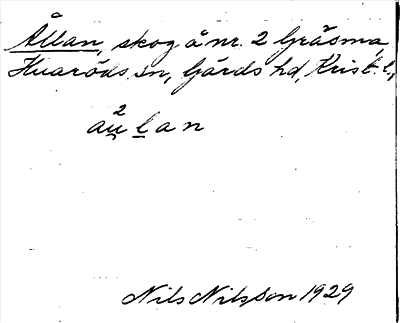 Ållan, skog å nr. 2 Gräsma,
Huaröds sn, Gärds hd, Krist. l.,
au̯²l̲an
Nils Nilsson 1929